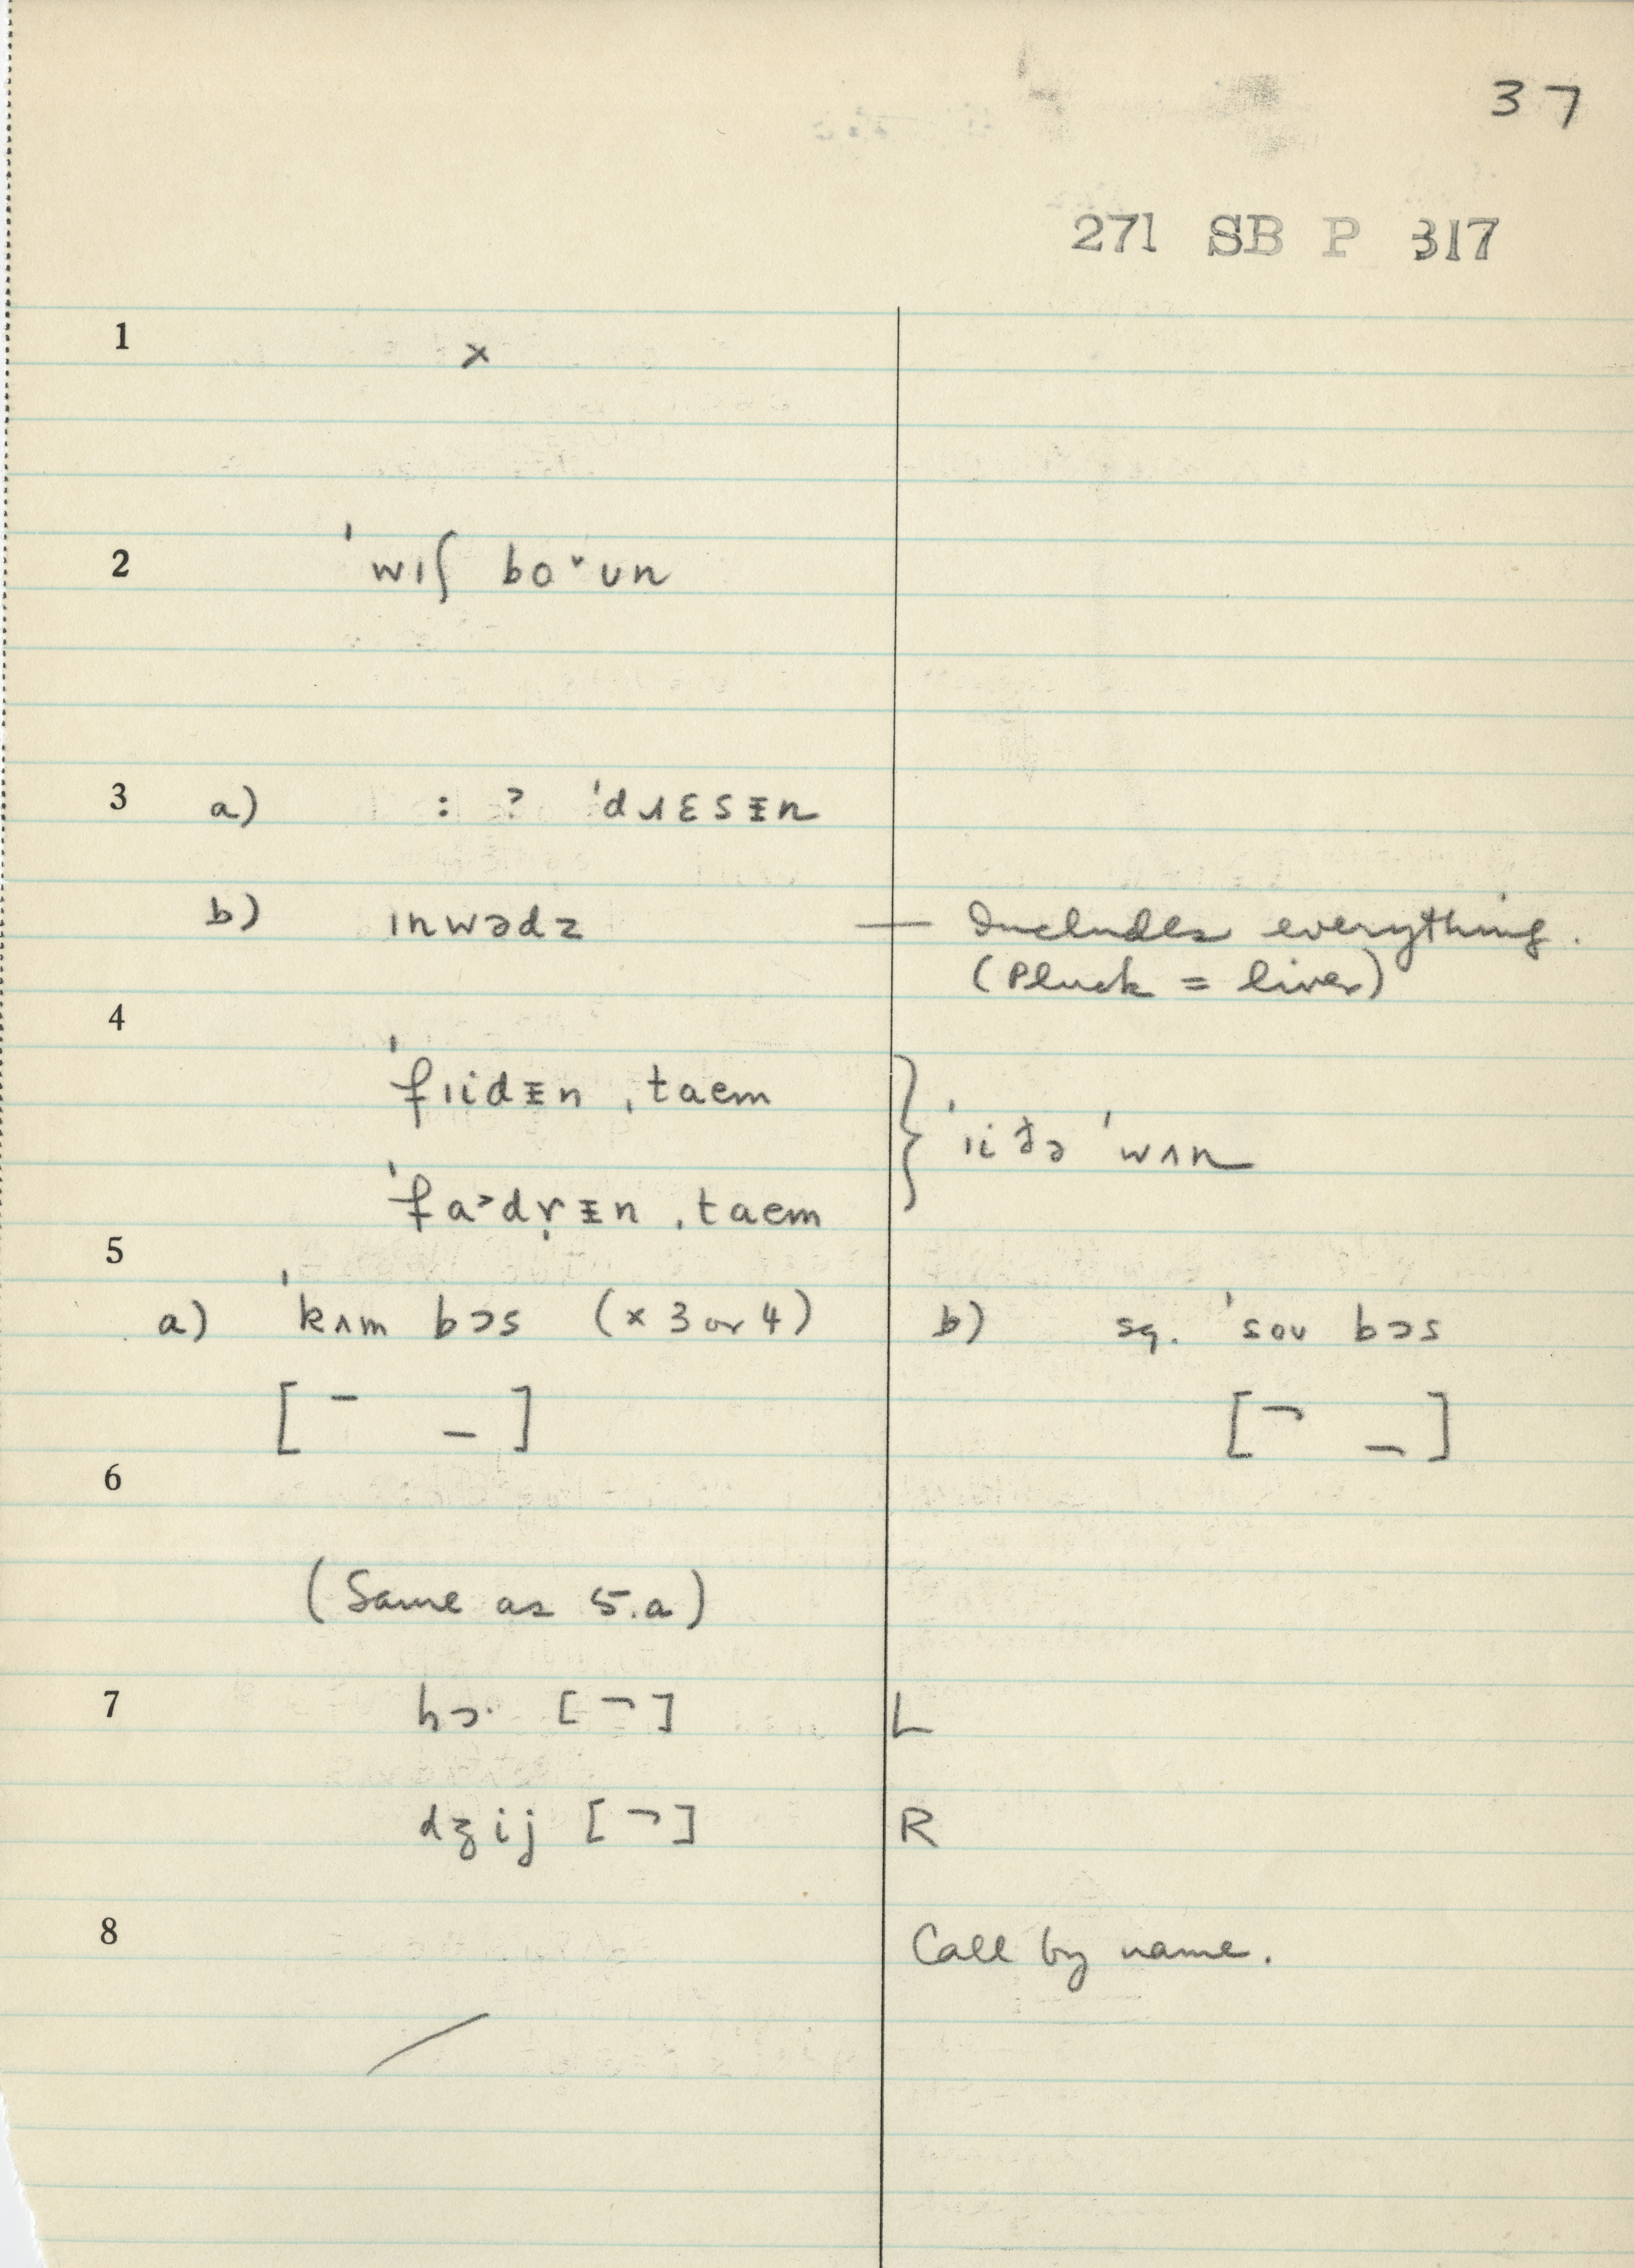 37
271 SB P 317
1 x
2 ˈwɪʃ bo˅ʊn
3 a) : ? ˈdɹɛsɪ̵n
b) ɪnwədz — Includes everything.
(Pluck = liver)
4
ˈfɪidɪ̵n ˌtaem
ˈɪiðə ˈwʌn
ˈfa˃dṛɪ̵n ˌtaem
5
a) ˈkʌm bɔs (x 3 or 4) b) sg. ˈsoʊ bɔs
[ ¯ _ ] [ ¬ _ ]
6
(Same as 5.a)
7 hɔ· [ ¬ ] L
dʒij [ ¬ ] R
8 Call by name.